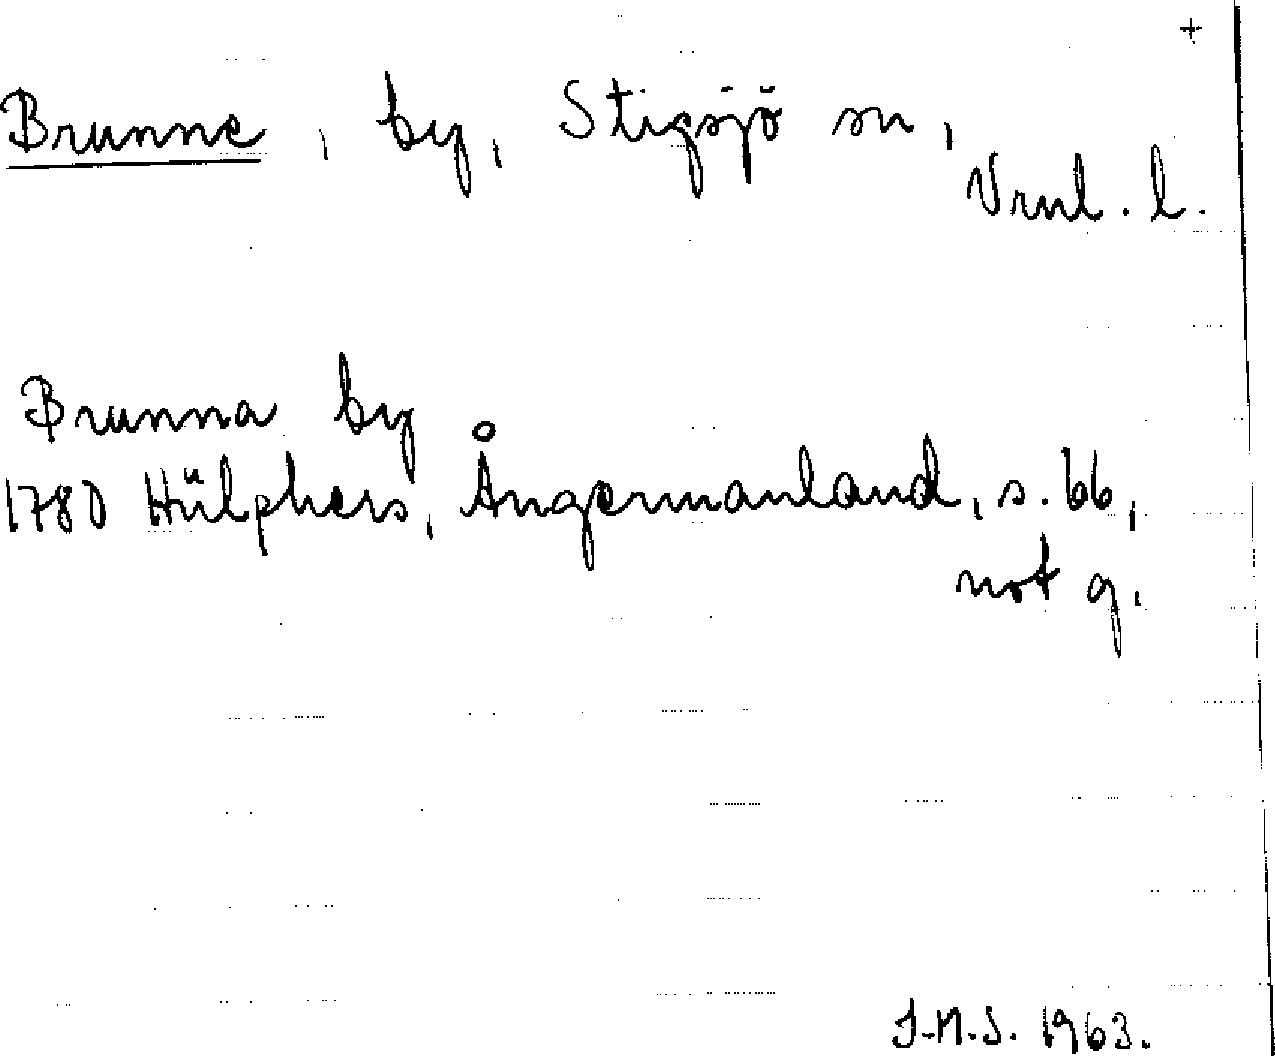 +
Brunne, by, Stigsjö sn,
Vrnl. l.
Brunna by
1780 Hülphers, Ångermanland, s. 66,
not q.
J.M.S. 1963.